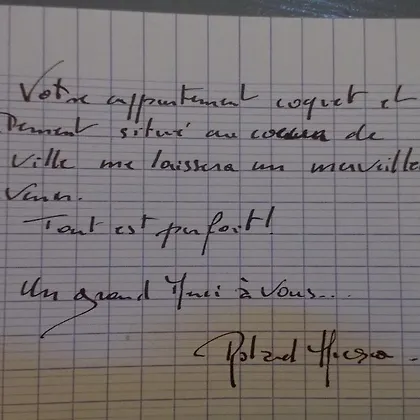 Votre appartement coquet et
situé au coeur de
ville me laissera un merveille
Tout est parfait!
Un grand Merci à Vous...
Roland